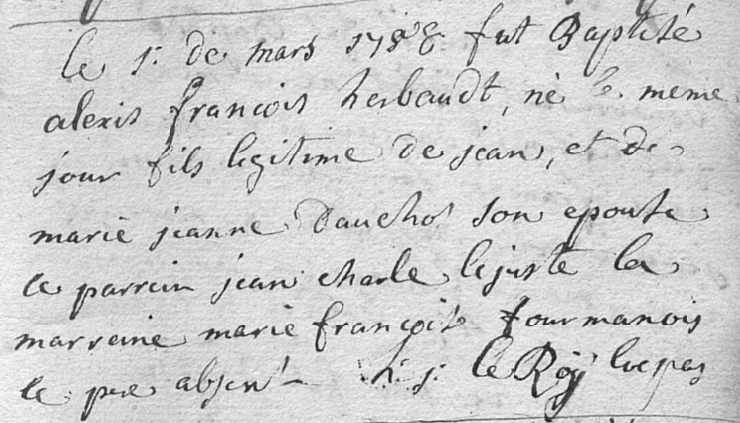 le 1r de mars 1758 fut Baptisé
alexis françois herbaudt, né le meme
jour fils legitime de jean, et de
marie jeanne Dauchot son epouse
le parrein jean charle lejuste la
marreine marie françoise fourmanois
le pere absent le Roÿ